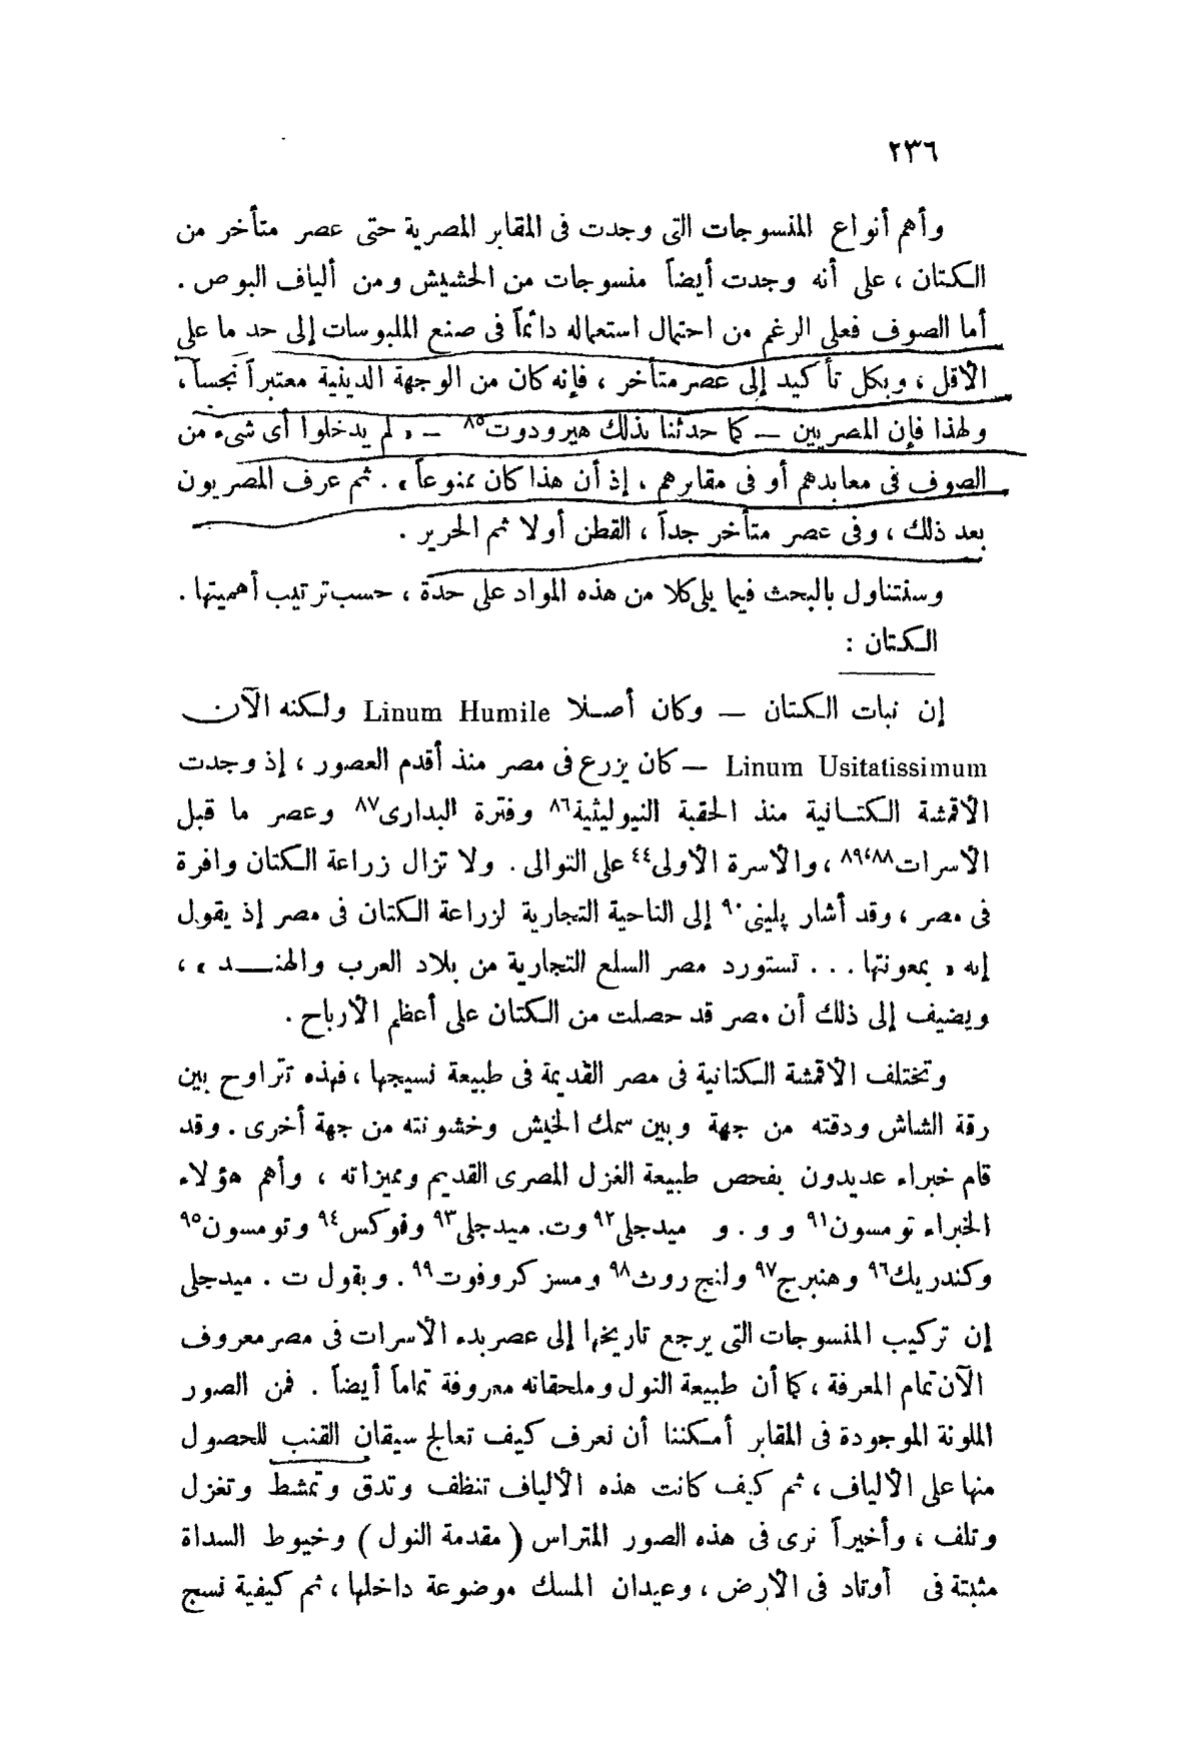 ٢٣٦
وأهم أنواع المنسوجات التى وجدت فى المقابر المصرية حتى عصر متأخر من
الكتان ، على أنه وجدت أيضاً منسوجات من الحشيش ومن ألياف البوص .
أما الصوف فعلى الرغم من احتمال استعماله دائماً فى صنع الملبوسات إلى حد ما على
الأقل ، وبكل تأكيد إلى عصر متأخر ، فإنه كان من الوجهة الدينية معتبراً نجساً ،
ولهذا فإن المصريين — كما حدثنا بذلك هيرودوت٨٥ — « لم يدخلوا أى شىء من
الصوف فى معابدهم أو فى مقابرهم ، إذ أن هذا كان ممنوعاً » . ثم عرف المصريون
بعد ذلك ، وفى عصر متأخر جداً ، القطن أولا ثم الحرير .
وسنتناول بالبحث فيما يلى كلا من هذه المواد على حدة ، حسب ترتيب أهميتها .
الكتان :
إن نبات الكتان — وكان أصلا Linum Humile ولكنه الآن
Linum Usitatissimum — كان يزرع فى مصر منذ أقدم العصور ، إذ وجدت
الأقمشة الكتانية منذ الحقبة النيوليثية٨٦ وفترة البدارى٨٧ وعصر ما قبل
الأسرات٨٨،٨٩ ، والأسرة الأولى٤٤ على التوالى . ولا تزال زراعة الكتان وافرة
فى مصر ، وقد أشار پلينى٩٠ إلى الناحية التجارية لزراعة الكتان فى مصر إذ يقول
إنه « بمعونتها ... تستورد مصر السلع التجارية من بلاد العرب والهنـد » ،
ويضيف إلى ذلك أن مصر قد حصلت من الكتان على أعظم الأرباح .
وتختلف الأقمشة الكتانية فى مصر القديمة فى طبيعة نسيجها ، فهذه تتراوح بين
رقة الشاش ودقته من جهة وبين سمك الخيش وخشونته من جهة أخرى . وقد
قام خبراء عديدون بفحص طبيعة الغزل المصرى القديم ومميزاته ، وأهم هؤلاء
الخبراء تومسون٩١ و و . و ميدجلى٩٢ وت. ميدجلى٩٣ وفوكس٩٤ وتومسون٩٥
وكندريك٩٦ وهنبرج٩٧ ولنج روث٩٨ ومسز كروفوت٩٩ . ويقول ت . ميدجلى
إن تركيب المنسوجات التى يرجع تاريخها إلى عصر بدء الأسرات فى مصر معروف
الآن تمام المعرفة ، كما أن طبيعة النول وملحقاته معروفة تماماً أيضاً . فمن الصور
الملونة الموجودة فى المقابر أمكننا أن نعرف كيف تعالج سيقان القنب للحصول
منها على الألياف ، ثم كيف كانت هذه الألياف تنظف وتدق وتمشط وتغزل
وتلف ، وأخيراً نرى فى هذه الصور المتراس ( مقدمة النول ) وخيوط السداة
مثبتة فى أوتاد فى الأرض ، وعيدان المسك موضوعة داخلها ، ثم كيفية نسج